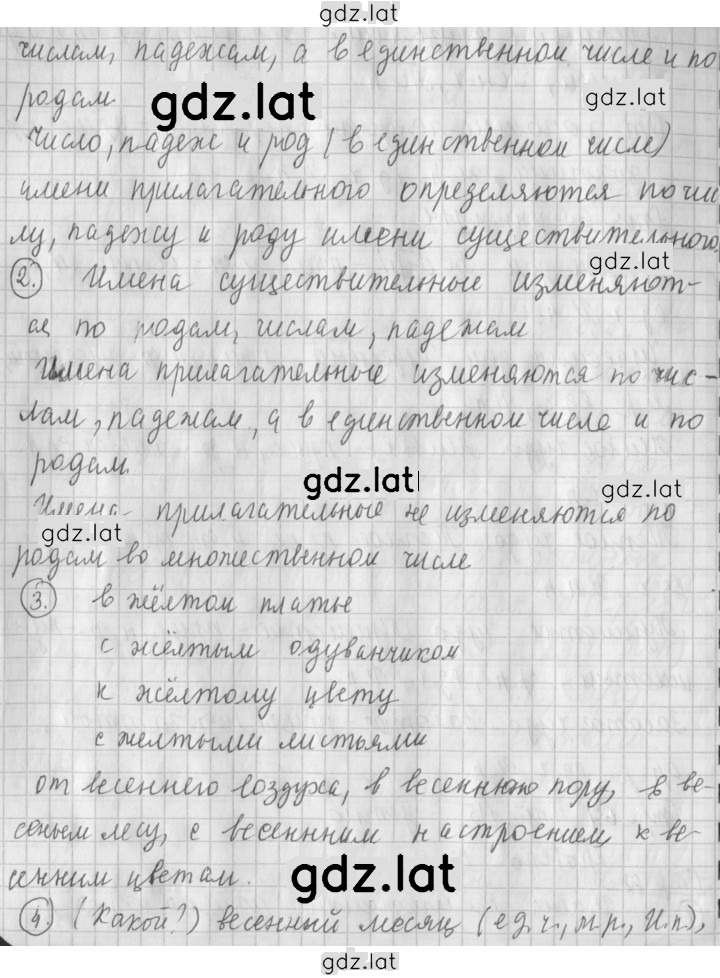 gdz.lat
числам, падежам, а в единственном числе и по
родам
gdz.lat
gdz.lat
число, падеж и род (в единственном числе)
имени прилагательного определяются по чис
лу, падежу и роду имени существительного
gdz.lat
2. Имена существительные изменяют-
ся по родам, числам, падежам
Имена прилагательные изменяются по чис-
лам, падежам, а в единственном числе и по
родам.
gdz.lat
gdz.lat
Имена прилагательные не изменяются по
gdz.lat
родам во множественном числе
3. в жёлтом платье
с жёлтым одуванчиком
к жёлтому цвету
с желтыми листьями
от весеннего воздуха, в весеннюю пору, в ве-
сеннем лесу, с весенним настроением, к ве-
сенним цветам.
gdz.lat
4 (Какой?) весенный месяц (ед.ч., м.р., И.п),
gdz.lat